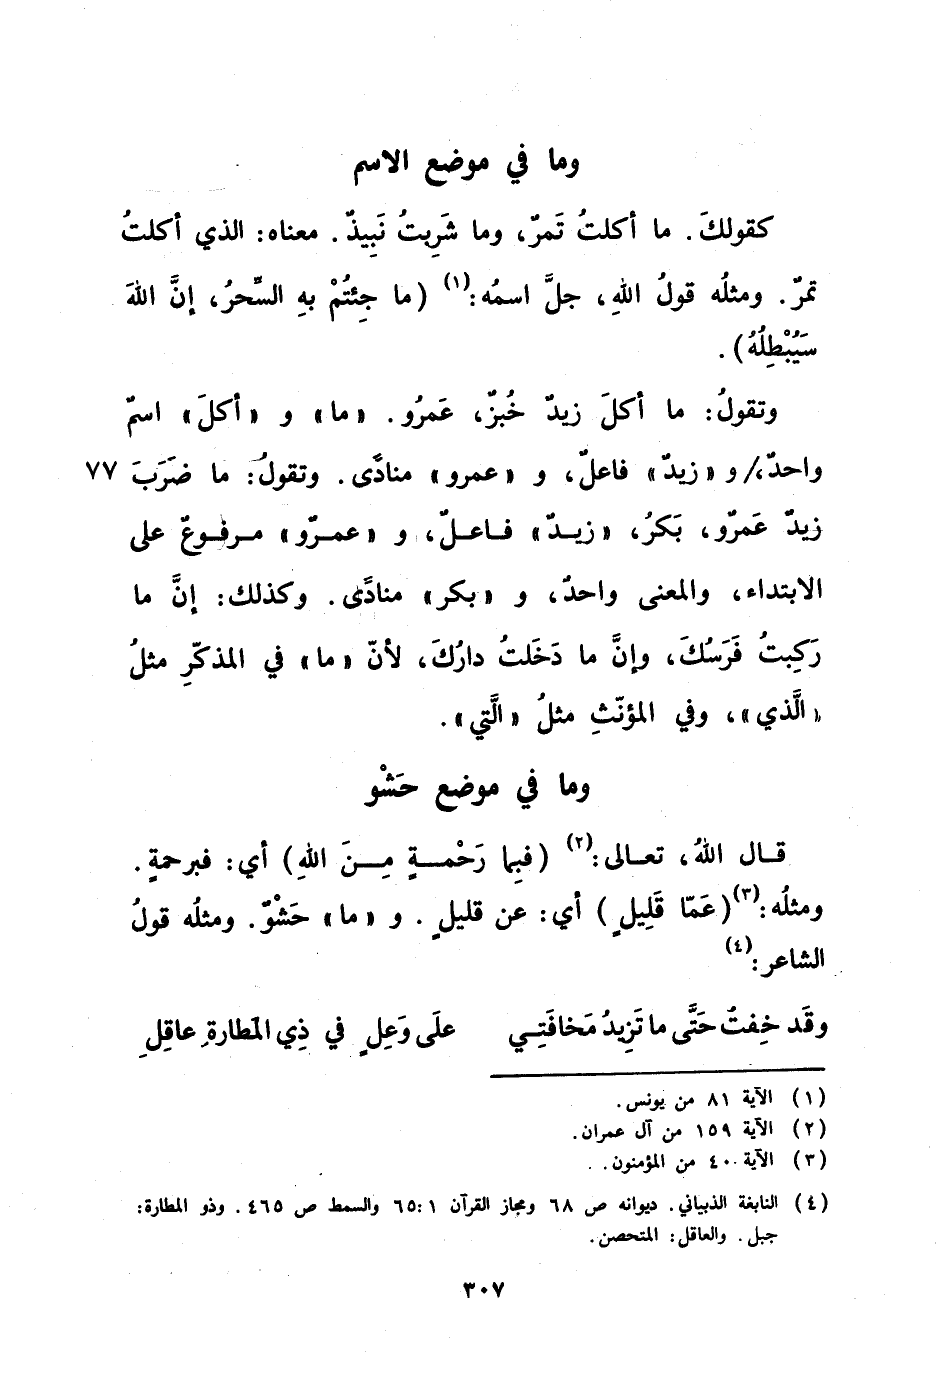 وما في موضع الاسم
كقولكَ. ما أكلتُ تَمرٌ، وما شَرِبتُ نَبِيذٌ. معناه: الذي أكلتُ
تمرٌ. ومثلُه قولُ اللهِ، جلَّ اسمُه:(١) (ما جِئتُمْ بهِ السِّحرُ، إنَّ اللهَ
سَيُبْطِلُهُ).
وتقولُ: ما أكلَ زيدٌ خُبزٌ، عَمرُو. «ما» و «أكلَ» اسمٌ
واحدٌ،/ و «زيدٌ» فاعلٌ، و «عمرو» منادًى. وتقولُ: ما ضَرَبَ ٧٧
زيدٌ عَمرٌو، بَكرُ، «زيـدٌ» فـاعـلٌ، و «عمـرٌو» مـرفـوعٌ على
الابتداء، والمعنى واحدٌ، و «بكر» منادًى. وكذلك: إنَّ ما
رَكِبتُ فَرَسُكَ، وإنَّ ما دَخَلتُ دارُكَ، لأنّ «ما» في المذكّرِ مثلُ
«الَّذي»، وفي المؤنّثِ مثلُ «الَّتي».
وما في موضع حَشْو
قـال اللهُ، تعـالى:(٢) (فبِما رَحْمـةٍ مِـنَ اللهِ) أي: فبرحمةٍ.
ومثلُه:(٣) (عَمّا قَلِيلٍ) أي: عن قليلٍ. و «ما» حَشْوٌ. ومثلُه قولُ
الشاعر:(٤)
وقَد خِفتُ حَتَّى ما تَزِيدُ مَخافَتِـي علَى وَعِلٍ في ذِي المَطارةِ عاقِلِ
(١) الآية ٨١ من يونس.
(٢) الآية ١٥٩ من آل عمران.
(٣) الآية ٤٠ من المؤمنون.
(٤) النابغة الذبياني. ديوانه ص ٦٨ ومجاز القرآن ٦٥:١ والسمط ص ٤٦٥. وذو المطارة:
جبل. والعاقل: المتحصن.
٣٠٧